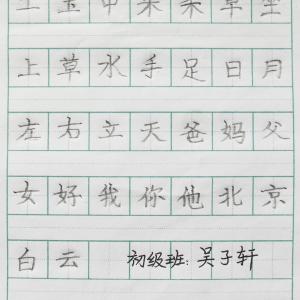 上草水手足日月
左右立天爸妈父
女好我你他北京
白云 初级班:吴子轩